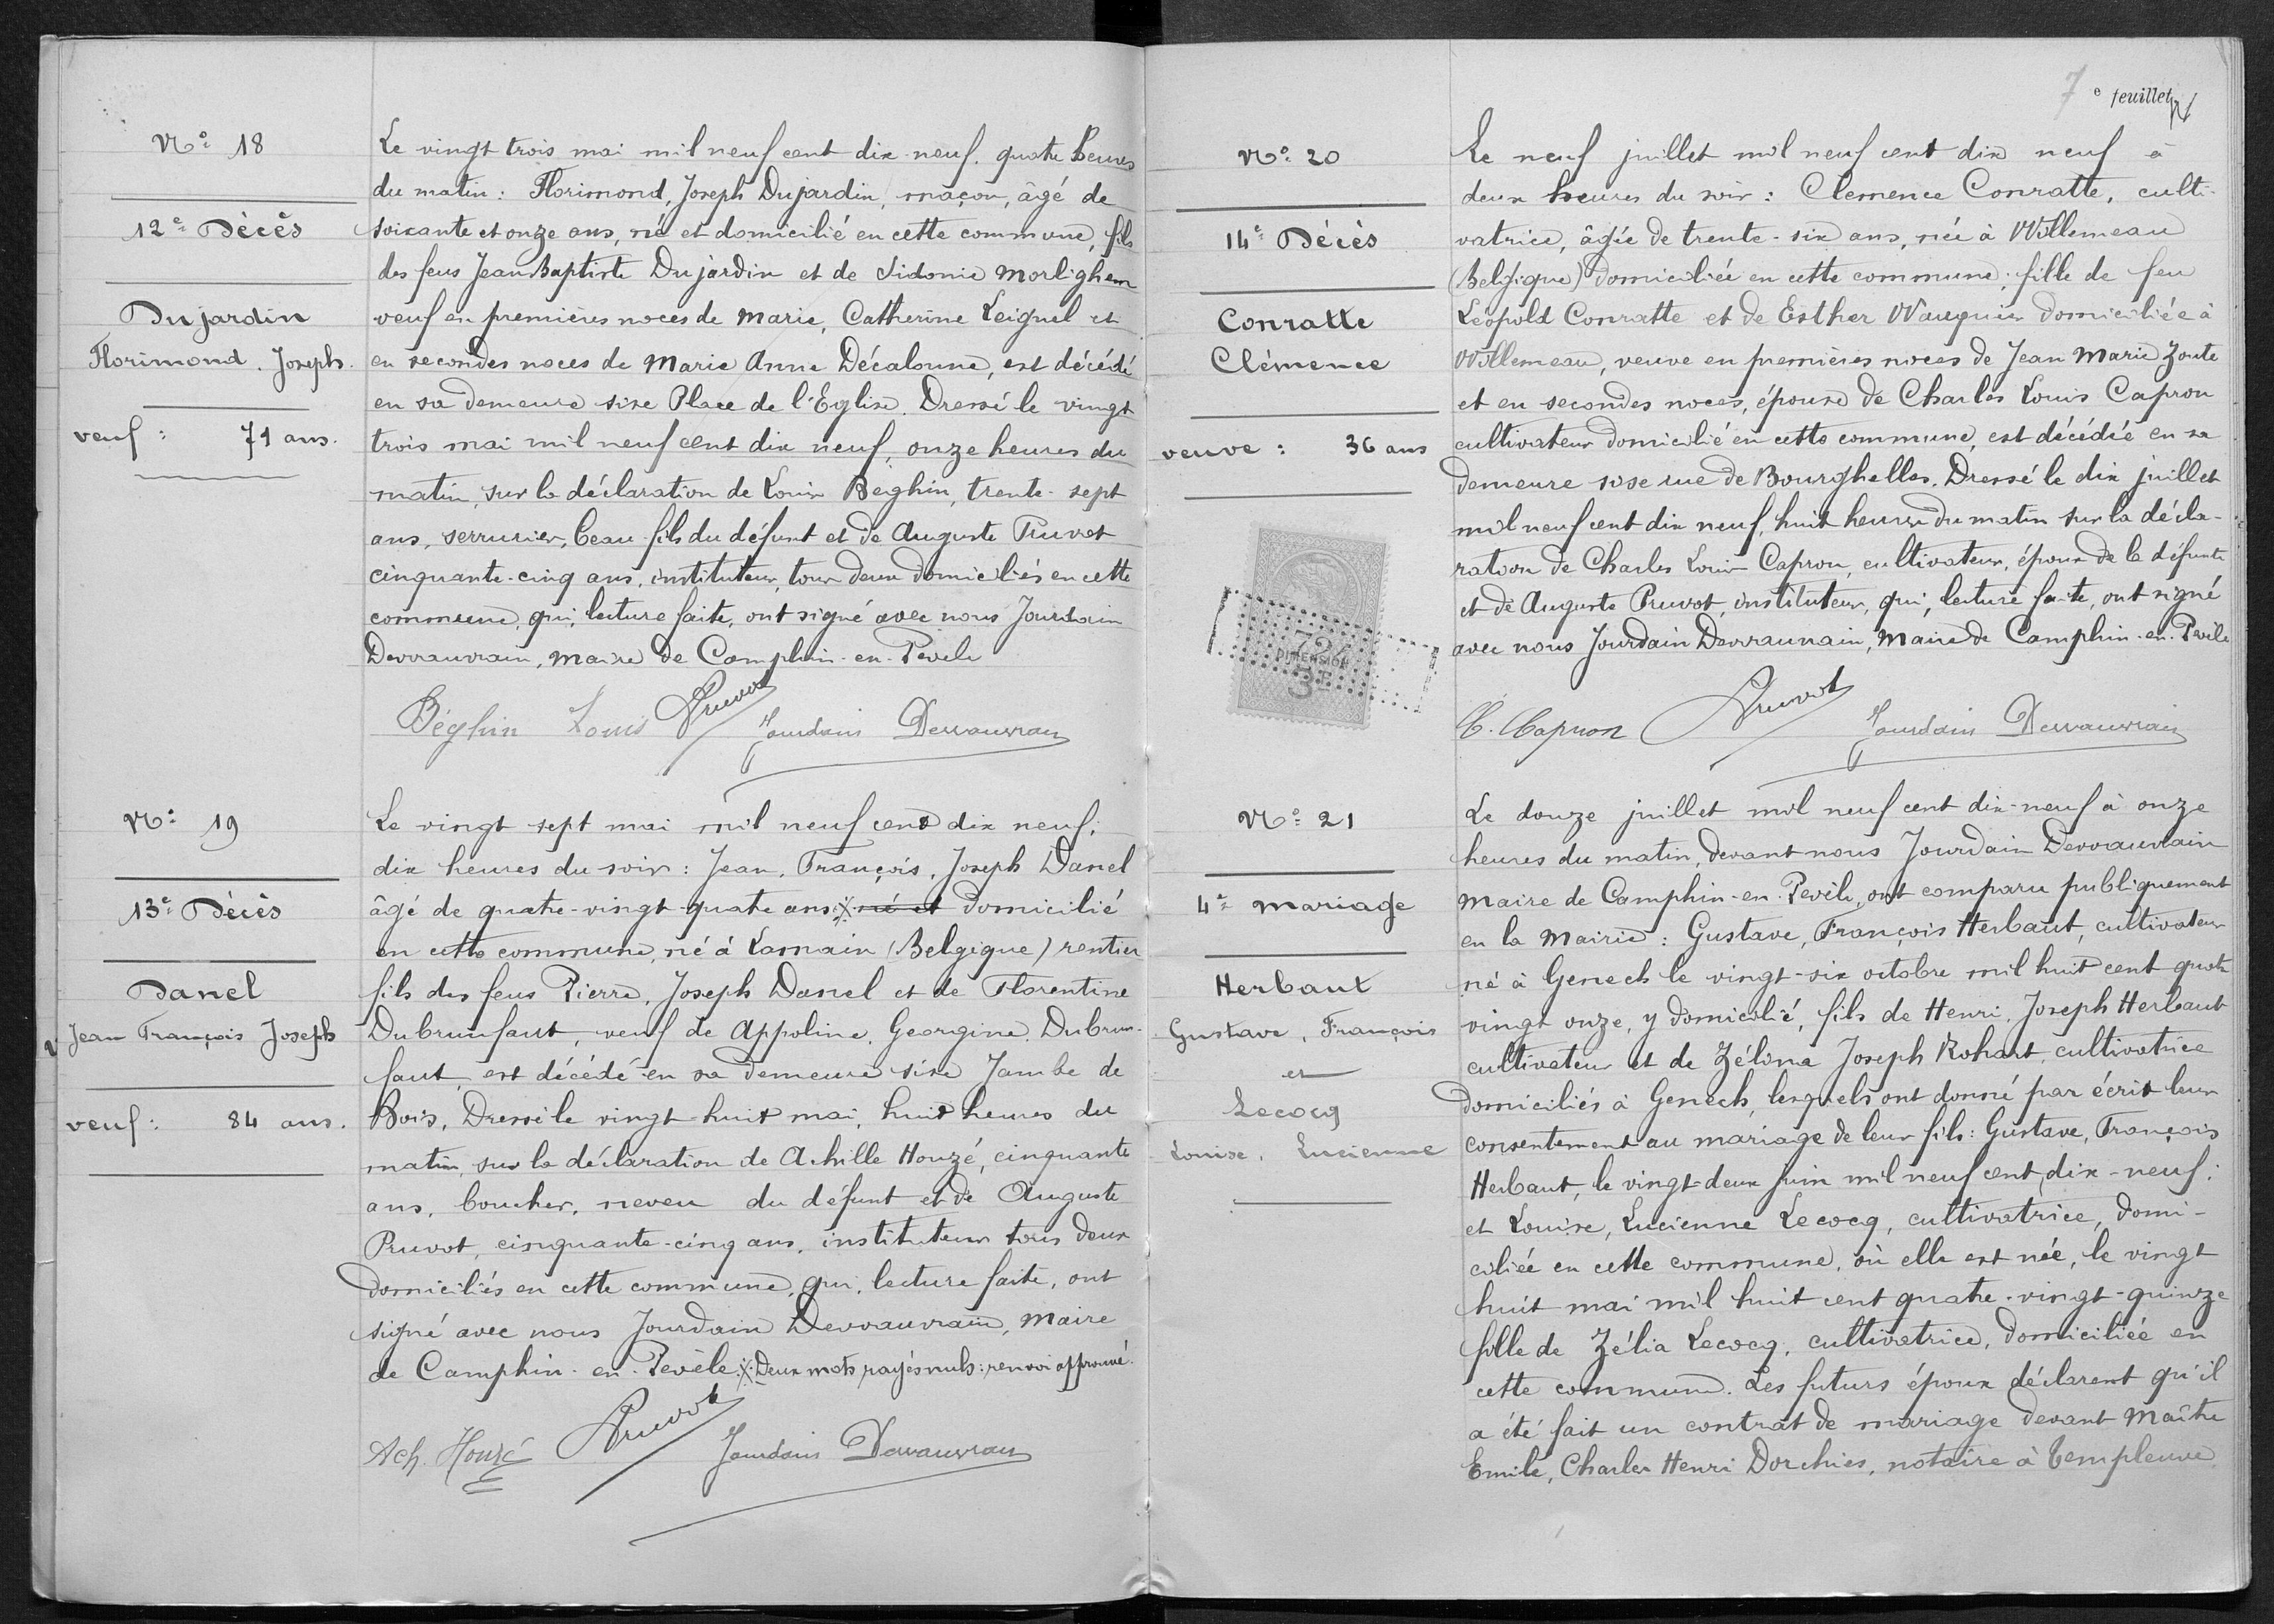 N° 18
12e Décès
Dujardin
Florimond. Joseph.
veuf : 71 ans.
Le vingt trois mai mil neuf cent dix-neuf. quatre heures
du matin : Florimond, Joseph Dujardin, maçon, âgé de
soixante et onze ans, né et domicilié en cette commune, fils
des feus Jean Baptiste Dujardin et de Sidonie Morlighem
veuf en premières noces de Marie, Catherine Leignel et
en secondes noces de Marie Anne Décalonne, est décédé
en sa demeure sise Place de l'Eglise. Dressé le vingt
trois mai mil neuf cent dix neuf, onze heures du
matin, sur la déclaration de Louis Beghin, trente-sept
ans, serrurier, beau-fils du défunt et de Auguste Pruvot
cinquante-cinq ans, instituteur, tous deux domiciliés en cette
commune, qui, lecture faite, ont signé avec nous Jourdain
Dewauvrain, Maire de Camphin-en-Pevèle
Béghin Louis Pruvot Jourdain Dewauvrain
N° 19
13e Décès
Danel
Jean François Joseph
veuf : 84 ans.
Le vingt sept mai mil neuf cent dix neuf,
dix heures du soir : Jean, François, Joseph Danel
âgé de quatre-vingt-quatre ans, X né et domicilié
en cette commune, né à Lamain (Belgique) rentier
fils des feus Pierre, Joseph Danel et de Florentine
Dubrunfaut, veuf de Appoline, Georgine, Dubrun-
faut, est décédé en sa demeure sise Jambe de
Bois, Dressé le vingt-huit mai, huit heures du
matin, sur la déclaration de Achille Houzé, cinquante
ans, boucher, neveu du défunt et de Auguste
Pruvot, cinquante-cinq ans, instituteur tous deux
domiciliés en cette commune, qui, lecture faite, ont
signé avec nous Jourdain Dewauvrain, Maire
de Camphin-en-Pevèle. X Deux mots rayés nuls : renvoi approuvé.
Ach. Houzé Pruvot Jourdain Dewauvrain
7e feuillet
N° 20
14e Décès
Conratte
Clémence
veuve : 36 ans
724
DIMENSION
3F
Le neuf juillet mil neuf cent dix neuf à
deux heures du soir : Clemence Conratte, culti-
vatrice, âgée de trente-six ans, née à Willemeau
(Belgique) domiciliée en cette commune, fille de feu
Léopold Conratte et de Esther Wauquier domiciliée à
Willemeau, veuve en premières noces de Jean Marie Zoute
et en secondes noces, épouse de Charles Louis Capron
cultivateur domicilié en cette commune, est décédée en sa
demeure sise rue de Bourghelles. Dressé le dix juillet
mil neuf cent dix neuf, huit heures du matin sur la décla-
ration de Charles Louis Capron, cultivateur, époux de la défunte
et de Auguste Pruvot, instituteur, qui, lecture faite, ont signé
avec nous Jourdain Dewauvrain, Maire de Camphin-en-Pevèle
C. Capron Pruvot Jourdain Dewauvrain
N° 21
4e Mariage
Herbaut
Gustave, François
et
Lecocq
Louise, Lucienne
Le douze juillet mil neuf cent dix-neuf à onze
heures du matin, devant nous Jourdain Dewauvrain
Maire de Camphin-en-Pevèle, ont comparu publiquement
en la Mairie : Gustave, François Herbaut, cultivateur
né à Genech le vingt-six octobre mil huit cent quatre
vingt onze, y domicilié, fils de Henri, Joseph Herbaut
cultivateur et de Zélina Joseph Rohart, cultivatrice
domiciliés à Genech, lesquels ont donné par écrit leur
consentement au mariage de leur fils : Gustave, François
Herbaut, le vingt-deux juin mil neuf cent dix-neuf ;
et Louise, Lucienne Lecocq, cultivatrice, domi-
ciliée en cette commune, où elle est née, le vingt
huit mai mil huit cent quatre-vingt-quinze
fille de Zélia Lecocq, cultivatrice, domiciliée en
cette commune. Les futurs époux déclarent qu'il
a été fait un contrat de mariage devant Maître
Emile, Charles Henri Dorchies, notaire à Templeuve